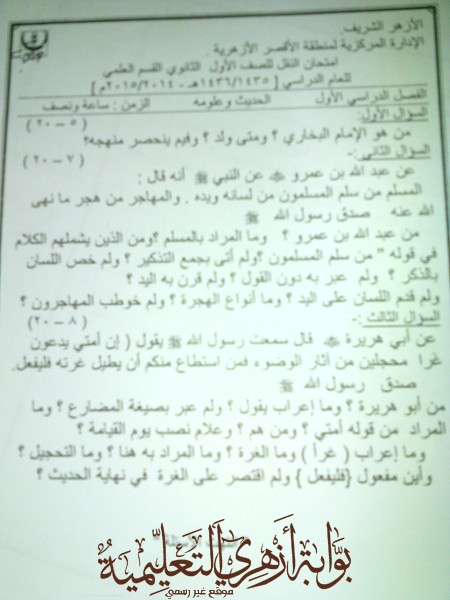 الأزهر الشريف
الإدارة المركزية لمنطقة الأقصر الأزهرية
امتحان النقل للصف الأول الثانوي القسم العلمي
للعام الدراسي [ ١٤٣٦/١٤٣٥هـ - ٢٠١٥/٢٠١٤م ]
الفصل الدراسي الأول الحديث وعلومه الزمن: ساعة ونصف
السؤال الأول: ( ٥ – ٢٠ )
من هو الإمام البخاري ؟ ومتى ولد ؟ وفيم ينحصر منهجه؟
السؤال الثاني:- ( ٧ – ٢٠ )
عن عبد الله بن عمرو ﷺ عن النبي ﷺ أنه قال :
المسلم من سلم المسلمون من لسانه ويده . والمهاجر من هجر ما نهى
الله عنه صدق رسول الله ﷺ
من عبد الله بن عمرو ؟ وما المراد بالمسلم ؟ومن الذين يشملهم الكلام
في قوله " من سلم المسلمون ؟ولم أتى بجمع التذكير ؟ ولم خص اللسان
بالذكر ؟ ولم عبر به دون القول ؟ ولم قرن به اليد ؟
ولم قدم اللسان على اليد ؟ وما أنواع الهجرة ؟ ولم خوطب المهاجرون ؟
السؤال الثالث:- ( ٨ – ٢٠ )
عن أبي هريرة قال سمعت رسول الله ﷺ يقول ( إن أمتي يدعون
غرا محجلين من آثار الوضوء فمن استطاع منكم أن يطيل غرته فليفعل.
صدق رسول الله ﷺ
من أبو هريرة ؟ وما إعراب يقول ؟ ولم عبر بصيغة المضارع ؟ وما
المراد من قوله أمتي ؟ ومن هم ؟ وعلام نصب يوم القيامة ؟
وما إعراب ( غرأ ) وما الغرة ؟ وما المراد به هنا ؟ وما التحجيل ؟
وأين مفعول {فليفعل} ولم اقتصر على الغرة في نهاية الحديث ؟
بوابة أزهري التعليمية
موقع غير رسمي